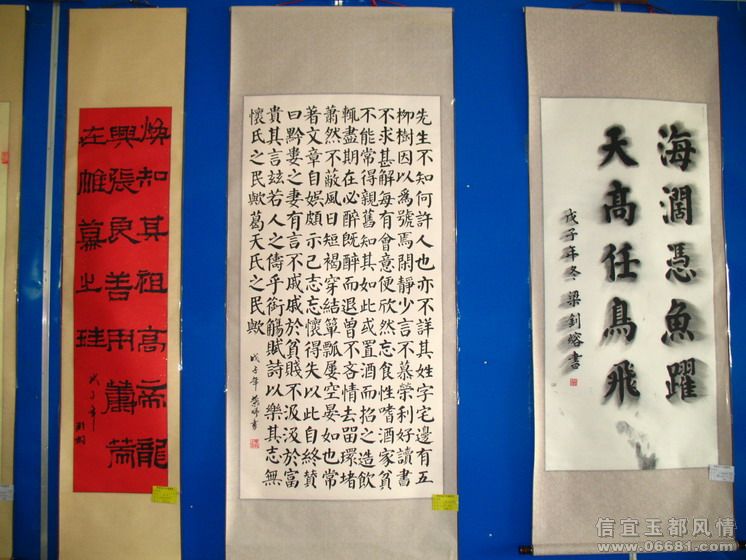 知其祖高帝龍
興張良善用蕭
在帷幕之珪
戊子年
先生不知何許人也亦不詳其姓字宅邊有五
柳樹因以為號焉閑靜少言不慕榮利好讀書
不求甚解每有會意便欣然忘食性嗜酒家貧
不能常得親舊知其如此或置酒而招之造飲
輒盡期在必醉既醉而退曾不吝情去留環堵
蕭然不蔽風日短褐穿結簞瓢屢空晏如也常
著文章自娛頗示己志忘懷得失以此自終贊
曰黔婁之妻有言不戚戚於貧賤不汲汲於富
貴其言茲若人之儔乎銜觴賦詩以樂其志無
懷氏之民歟葛天氏之民歟
戊子年
海濶憑魚躍
天高任鳥飛
戊子年冬 梁釗熔書
信宜玉都风情
www.06681.com